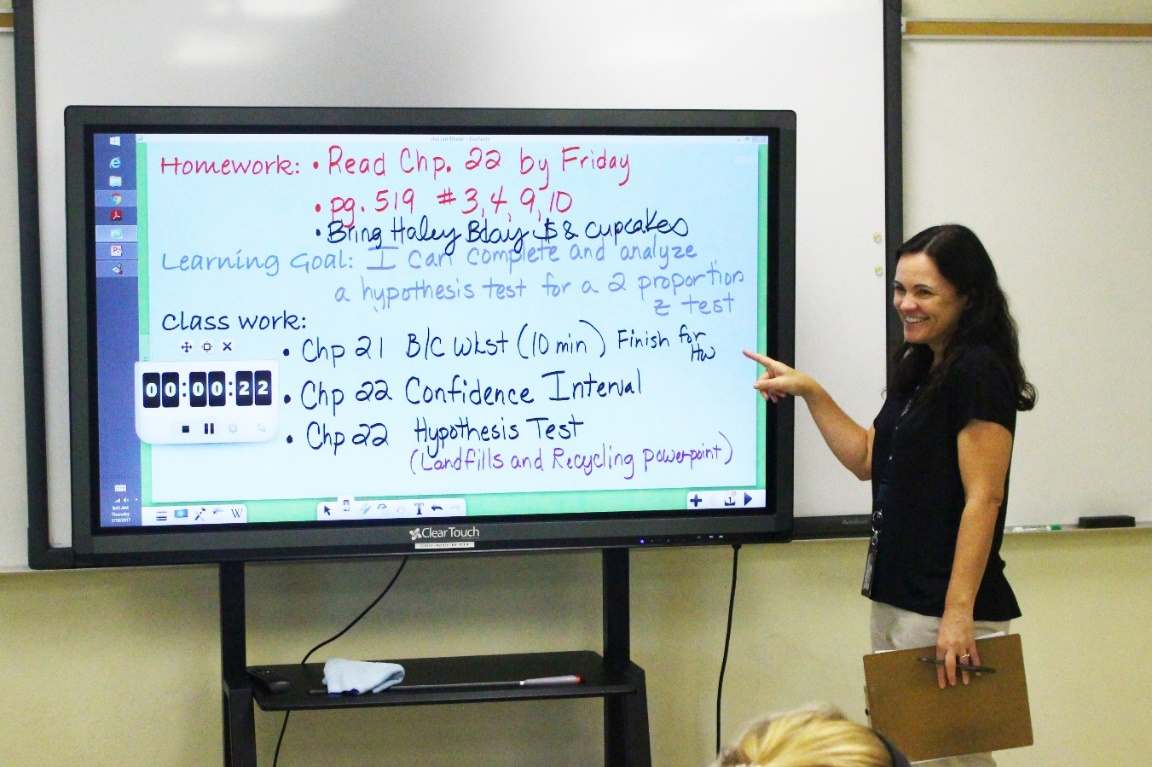 Homework: • Read Chp. 22 by Friday
• pg. 519 # 3, 4, 9, 10
• Bring Haley Bday $ & cupcakes
Learning Goal: I can complete and analyze
a hypothesis test for a 2 proportion
z test
Class work:
• Chp 21 B/C Wkst (10 min) Finish for
HW
00:00:22
• Chp 22 Confidence Interval
• Chp 22 Hypothesis Test
(Landfills and Recycling powerpoint)
Thursday
T W
ClearTouch